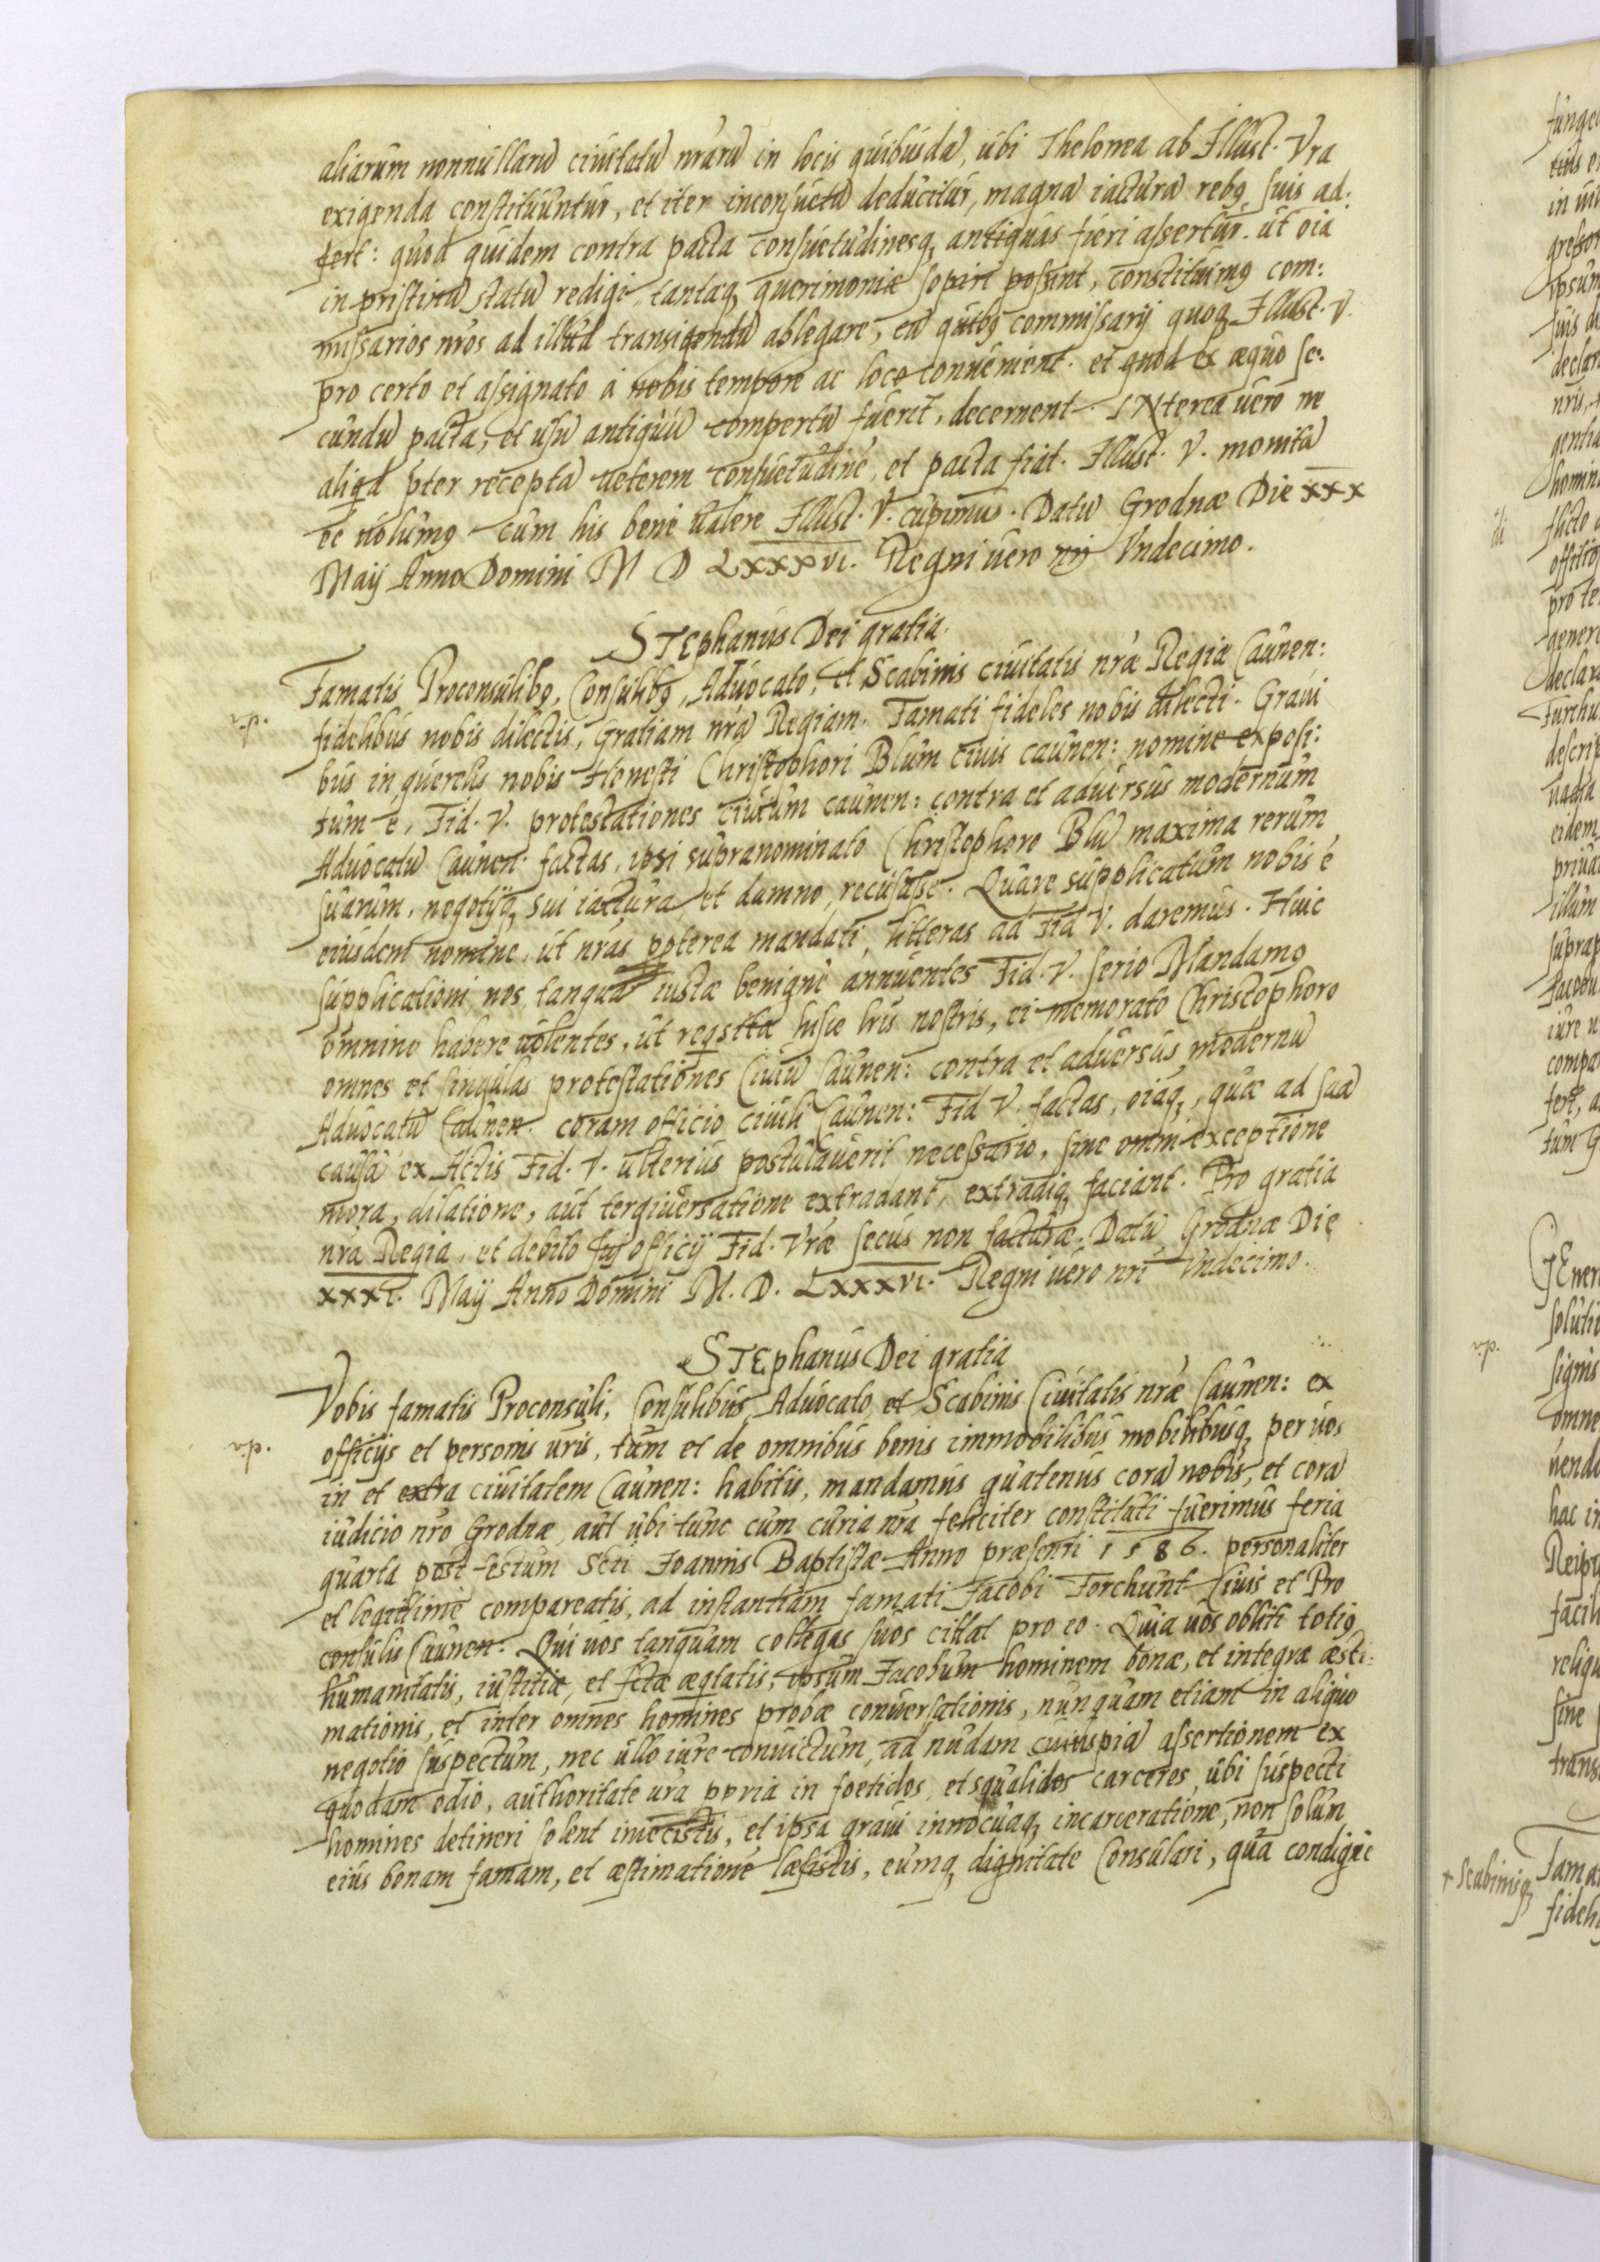 aliarum nonnullarū ciuitatū nrārū in locis quibusdā, ubi Thelonea ab Illust. Vra
exigenda constituuntur, et iter inconsuetū deducitur, magnā iacturā rebq suis ad:
fert: quod quidem contra pacta consuetudinesq antiquas fieri assertur. ut oīa
in pristinū statū redigi, tantæq querimoniæ sopiri possint, constituimq com:
missarios nros ad illud transigendū ablegare, cū quibq commissarij quoq Illust. V.
pro certo et assignato à nobis tempore ac loco conuenient. et quod ex æquo se:
cundū pacta, et usū antiquū compertū fuerit, decernent. INterea uero ne
aliqd pter receptā ueterem consuetudinē, et pacta fiat. Illust. V. monitā
eē uolumq cum his bene ualere Illust. V. cupimus. Datū Grodnæ Die XXX
Maij Anno Domini M D LXXXVI. Regni uero nri Vndecimo.
STEphanus Dei gratia.
Famatis Proconsulibq, Consulibq, Aduocato, et Scabinis ciuitatis nræ Regiæ Caunen:
fidelibus nobis dilectis, Gratiam nrā Regiam. Famati fideles nobis dilecti. Graui
bus in querelis nobis Honesti Christophori Blum ciuis caunen: nomine exposi:
tum ē, Fid. V. protestationes ciuium caunen: contra et aduersus modernum
Aduocatū Caunen. factas, ipsi supranominato Christophoro Blū maxima rerum
suarum, negotijq sui iactura, et damno, recusasse. Quare supplicatum nobis ē
eiusdem nomine, ut nrās ppterea mandati litteras ad Fid V. daremus. Huic
supplicationi nos tanquā iustæ benignè annuentes Fid. V. serio Mandamq
omnino habere uolentes, ut reqsitæ hisce lris nostris, ei memorato Christophoro
omnes et singulas protestationes Ciuiū Caunen: contra et aduersus modernū
Aduocatū Caunen. coram officio ciuili Caunen: Fid V. factas, oīaq, quæ ad suā
causā ex Actis Fid. V. ulterius postulauerit necessario, sine omni exceptione
mora, dilatione, aut tergiuersatione extradant, extradiq faciant. Pro gratia
nrā Regia, et debito officij Fid. Vræ secus non facturæ. Datū Grodnæ Die
XXXI. Maij Anno Domini M. D. LXXXVI. Regni uero nri Vndecimo.
STEphanus Dei gratia
Vobis famatis Proconsuli, Consulibus, Aduocato, et Scabinis Ciuitatis nræ Caunen: ex
officijs et personis uris, tum et de omnibus bonis immobilibus mobilibusq per uos
in et extra ciuitatem Caunen: habitis, mandamus quatenus corā nobis, et corā
iudicio nro Grodnæ, aut ubi tunc cum curia nra feliciter constituti fuerimus feria
quarta post festum Scti Joannis Baptistæ Anno præsenti 1586. personaliter
et legitimè compareatis, ad instantiam famati Jacobi Forchunt Ciuis et Pro
consulis Caunen: Qui uos tanquam collegas suos cittat pro eo. Quia uos obliti totiq
humanitatis, iustitiæ, et sctæ æqtatis, ipsum Jacobum hominem bonæ, et integræ æsti:
mationis, et inter omnes homines probæ conuersationis, nunquam etiam in aliquo
negotio suspectum, nec ullo iure conuictum, ad nudam cuiuspiā assertionem ex
quodam odio, authoritate urā ppriā in foetidos, et squalidos carceres, ubi suspecti
homines detineri solent iniecistis, et ipsa graui innocuaq incarceratione, non solum
eius bonam famam, et æstimationē læsistis, eumq dignitate Consulari, quā condignè
+ Scabinisq